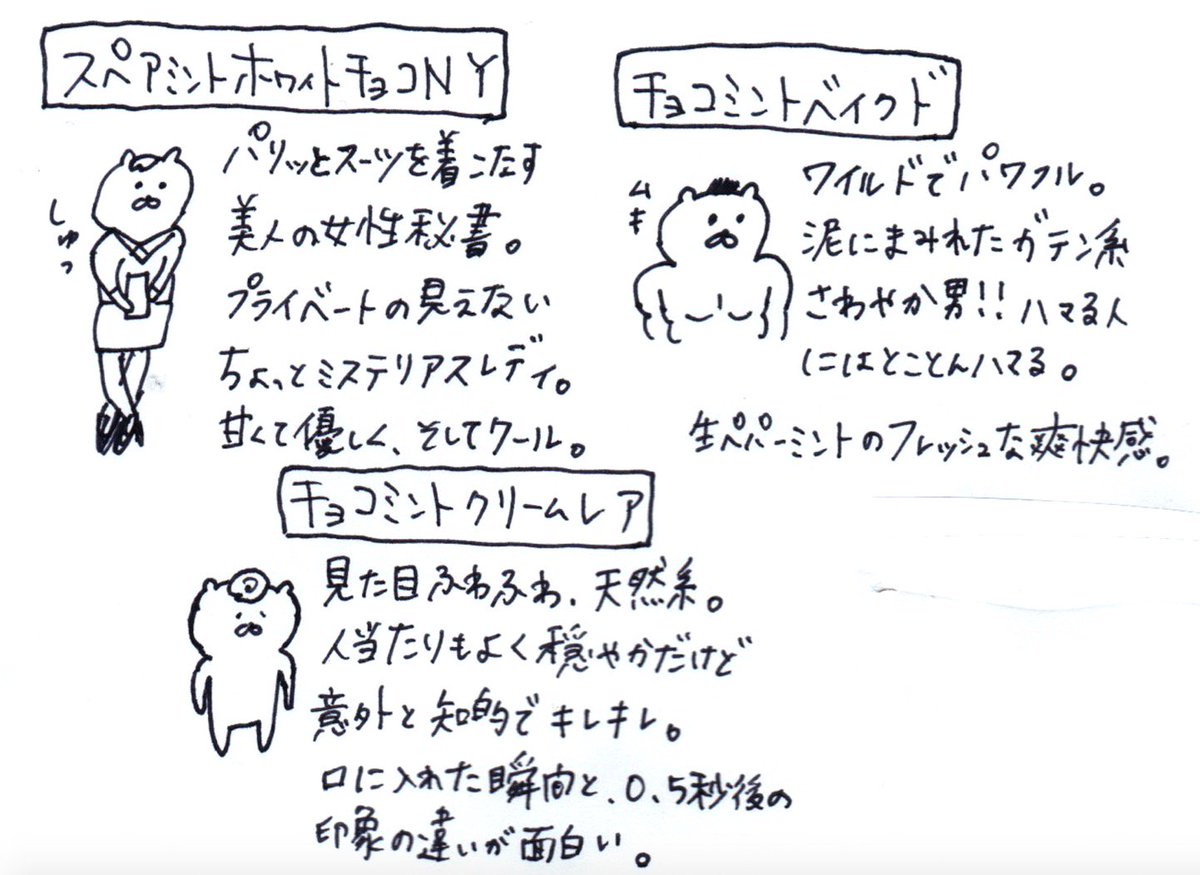 スペアミントホワイトチョコNY
しゅっ
パリッとスーツを着こたす
美人の女性秘書。
プライベートの見えない
ちょっとミステリアスレディ。
甘くて優しく、そしてクール。
チョコミントベイクド
ムキ
ワイルドでパワフル。
泥にまみれたガテン系
さわやか男!!ハマる人
にはとことんハマる。
生ペパーミントのフレッシュな爽快感。
チョコミントクリームレア
見た目ふわふわ、天然系。
人当たりもよく穏やかだけど
意外と知的でキレキレ。
口に入れた瞬間と、0.5秒後の
印象の違いが面白い。